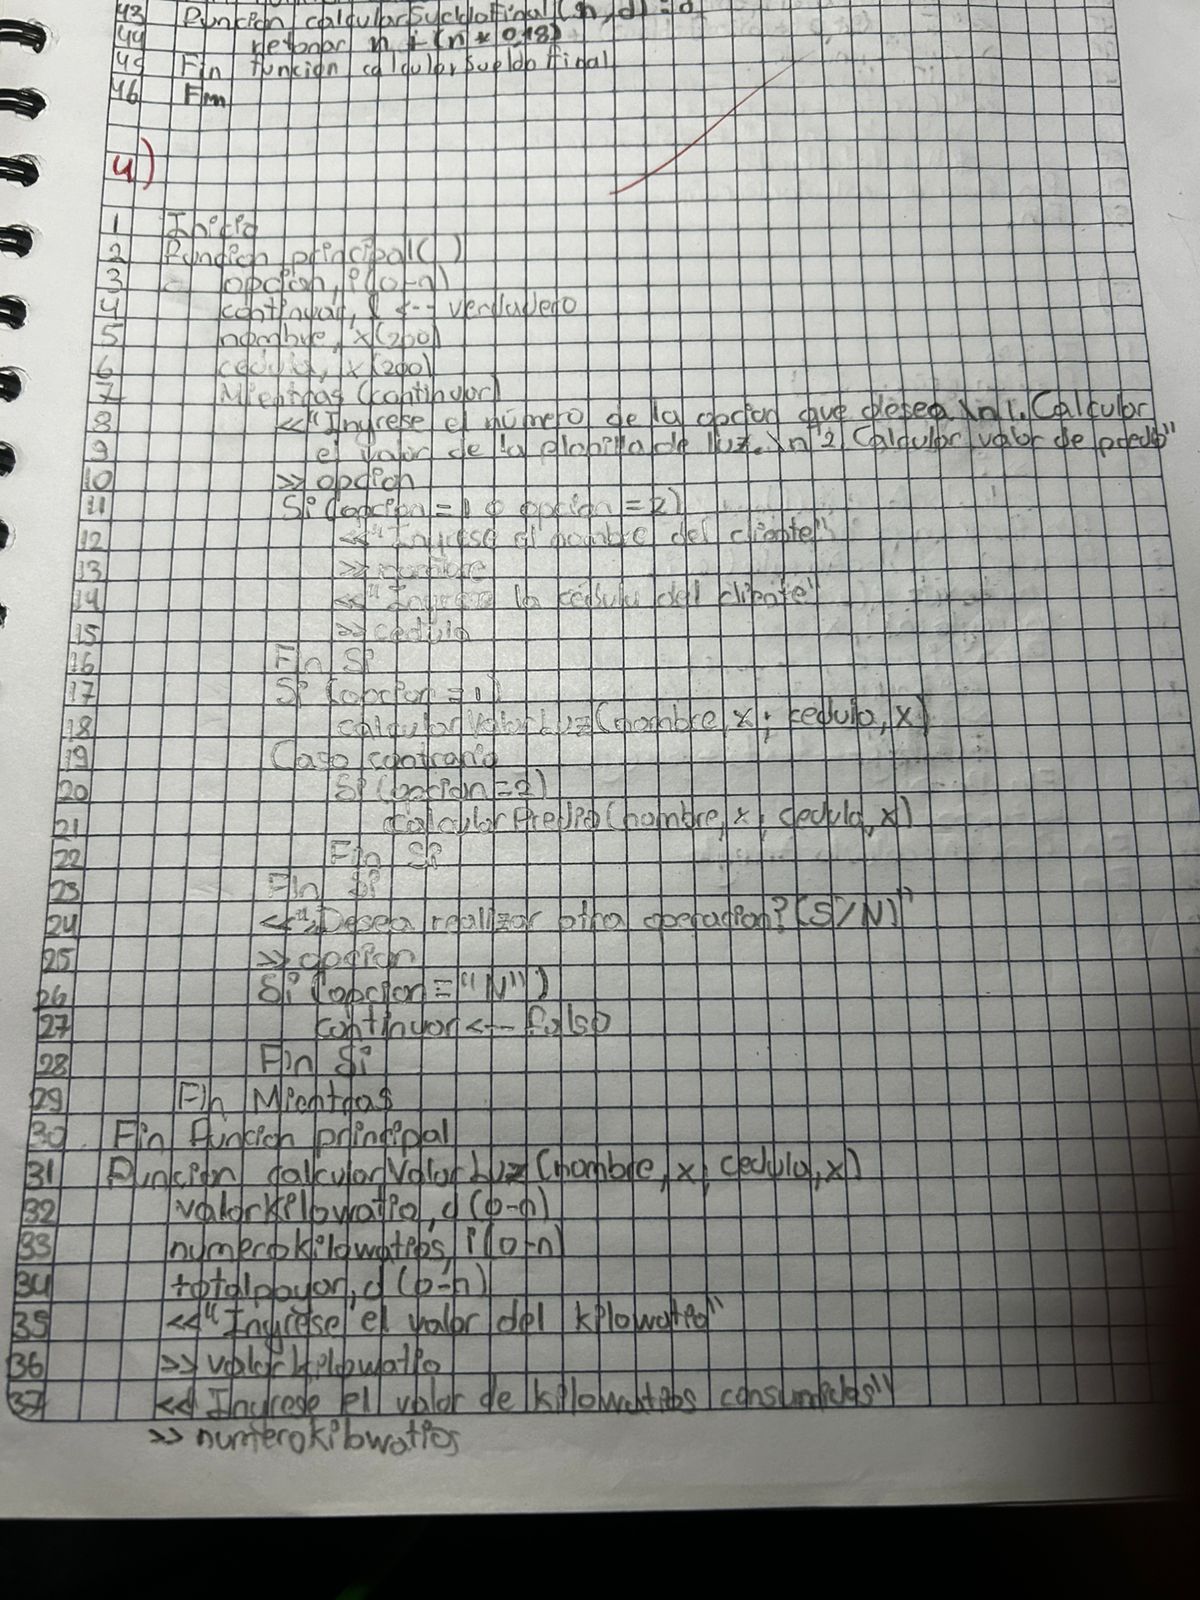 43 Funcion calcularSueldoFinal(n,d) = d
44 retonar n + (n * 0,18)
45 Fin funcion calcularSueldoFinal
46 Fin
4)
1 Inicio
2 Funcion principal( )
3 opcion, i(0-n)
4 continuar, l <-- verdadero
5 nombre, x(200)
6 cedula, x(200)
7 Mientras (continuar)
8 <<"Ingrese el número de la opcion que desea \n 1. Calcular
9 el valor de la planilla de luz. \n 2. Calcular valor de predio"
10 >> opcion
11 Si (opcion = 1 o opcion = 2)
12 <<"Ingrese el nombre del cliente"
13 >> nombre
14 <<"Ingrese la cédula del cliente"
15 >> cedula
16 Fin Si
17 Si (opcion = 1)
18 calcularValorLuz(nombre, x; cedula, x)
19 Caso contrario
20 Si (opcion = 2)
21 calcularPredio(nombre, x; cedula, x)
22 Fin Si
23 Fin Si
24 <<"¿Desea realizar otra operacion? (S/N)"
25 >> opcion
26 Si (opcion = "N")
27 continuar <-- falso
28 Fin Si
29 Fin Mientras
30 Fin Funcion principal
31 Funcion calcularValorLuz(nombre, x; cedula, x)
32 valorkilowatio, d(0-n)
33 numerokilowatios, i(0-n)
34 totalpagar, d(0-n)
35 <<"Ingrese el valor del kilowatio"
36 >> valorkilowatio
37 << Ingrese el valor de kilowatios consumidos"
>> numerokilowatios